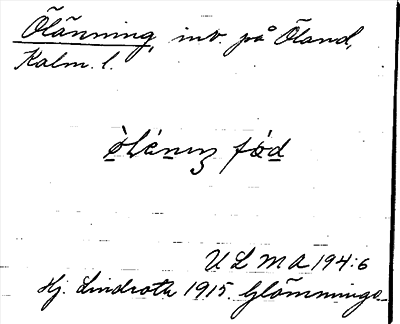 Ölänning, inv. på Öland,
Kalm. l.
ò̱lénıŋ fö̱d
U L M A 194:6
Hj. Lindroth 1915. Glömminge.